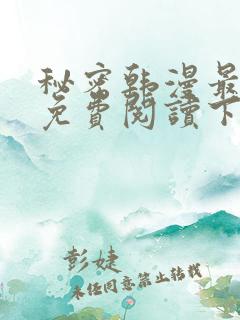 秘密韩漫最
免費閱讀下
彭婕
未经同意禁止转载